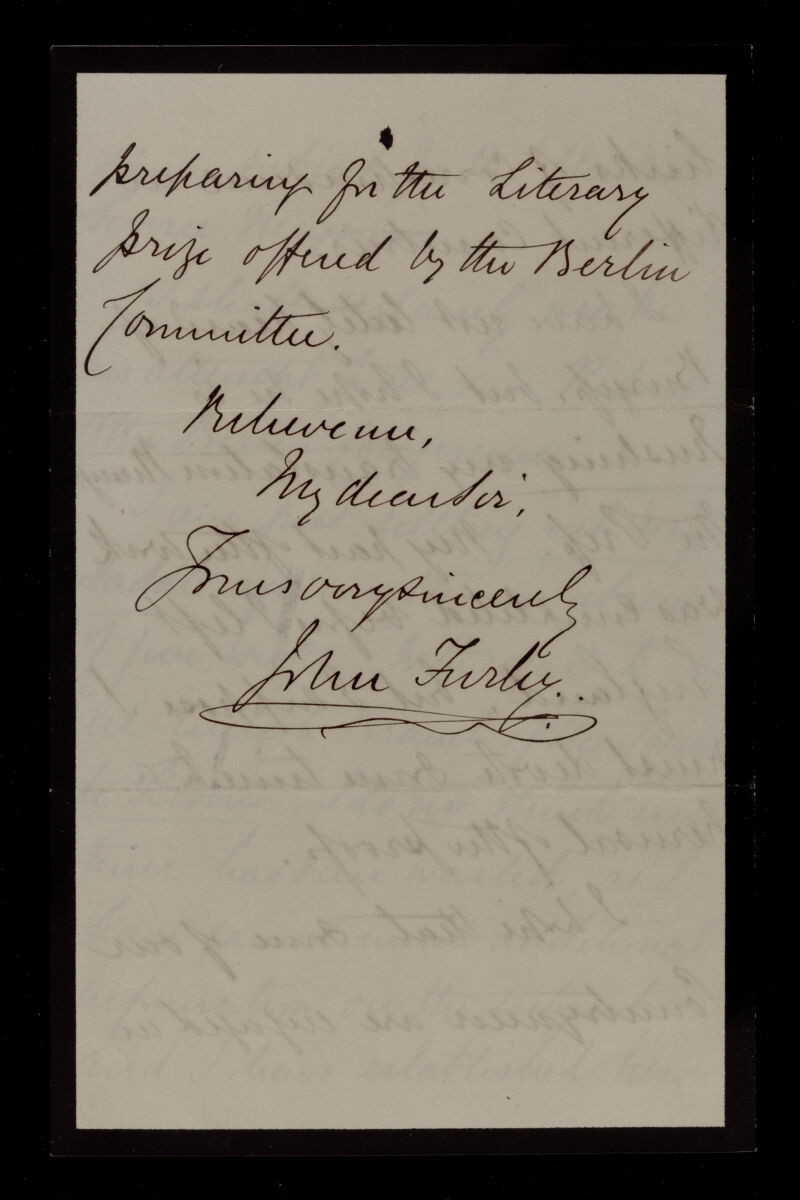 preparing for the Literary
prize offered by the Berlin
Committee.
Believe me,
My dear Sir,
Yours very sincerely
John Furley.